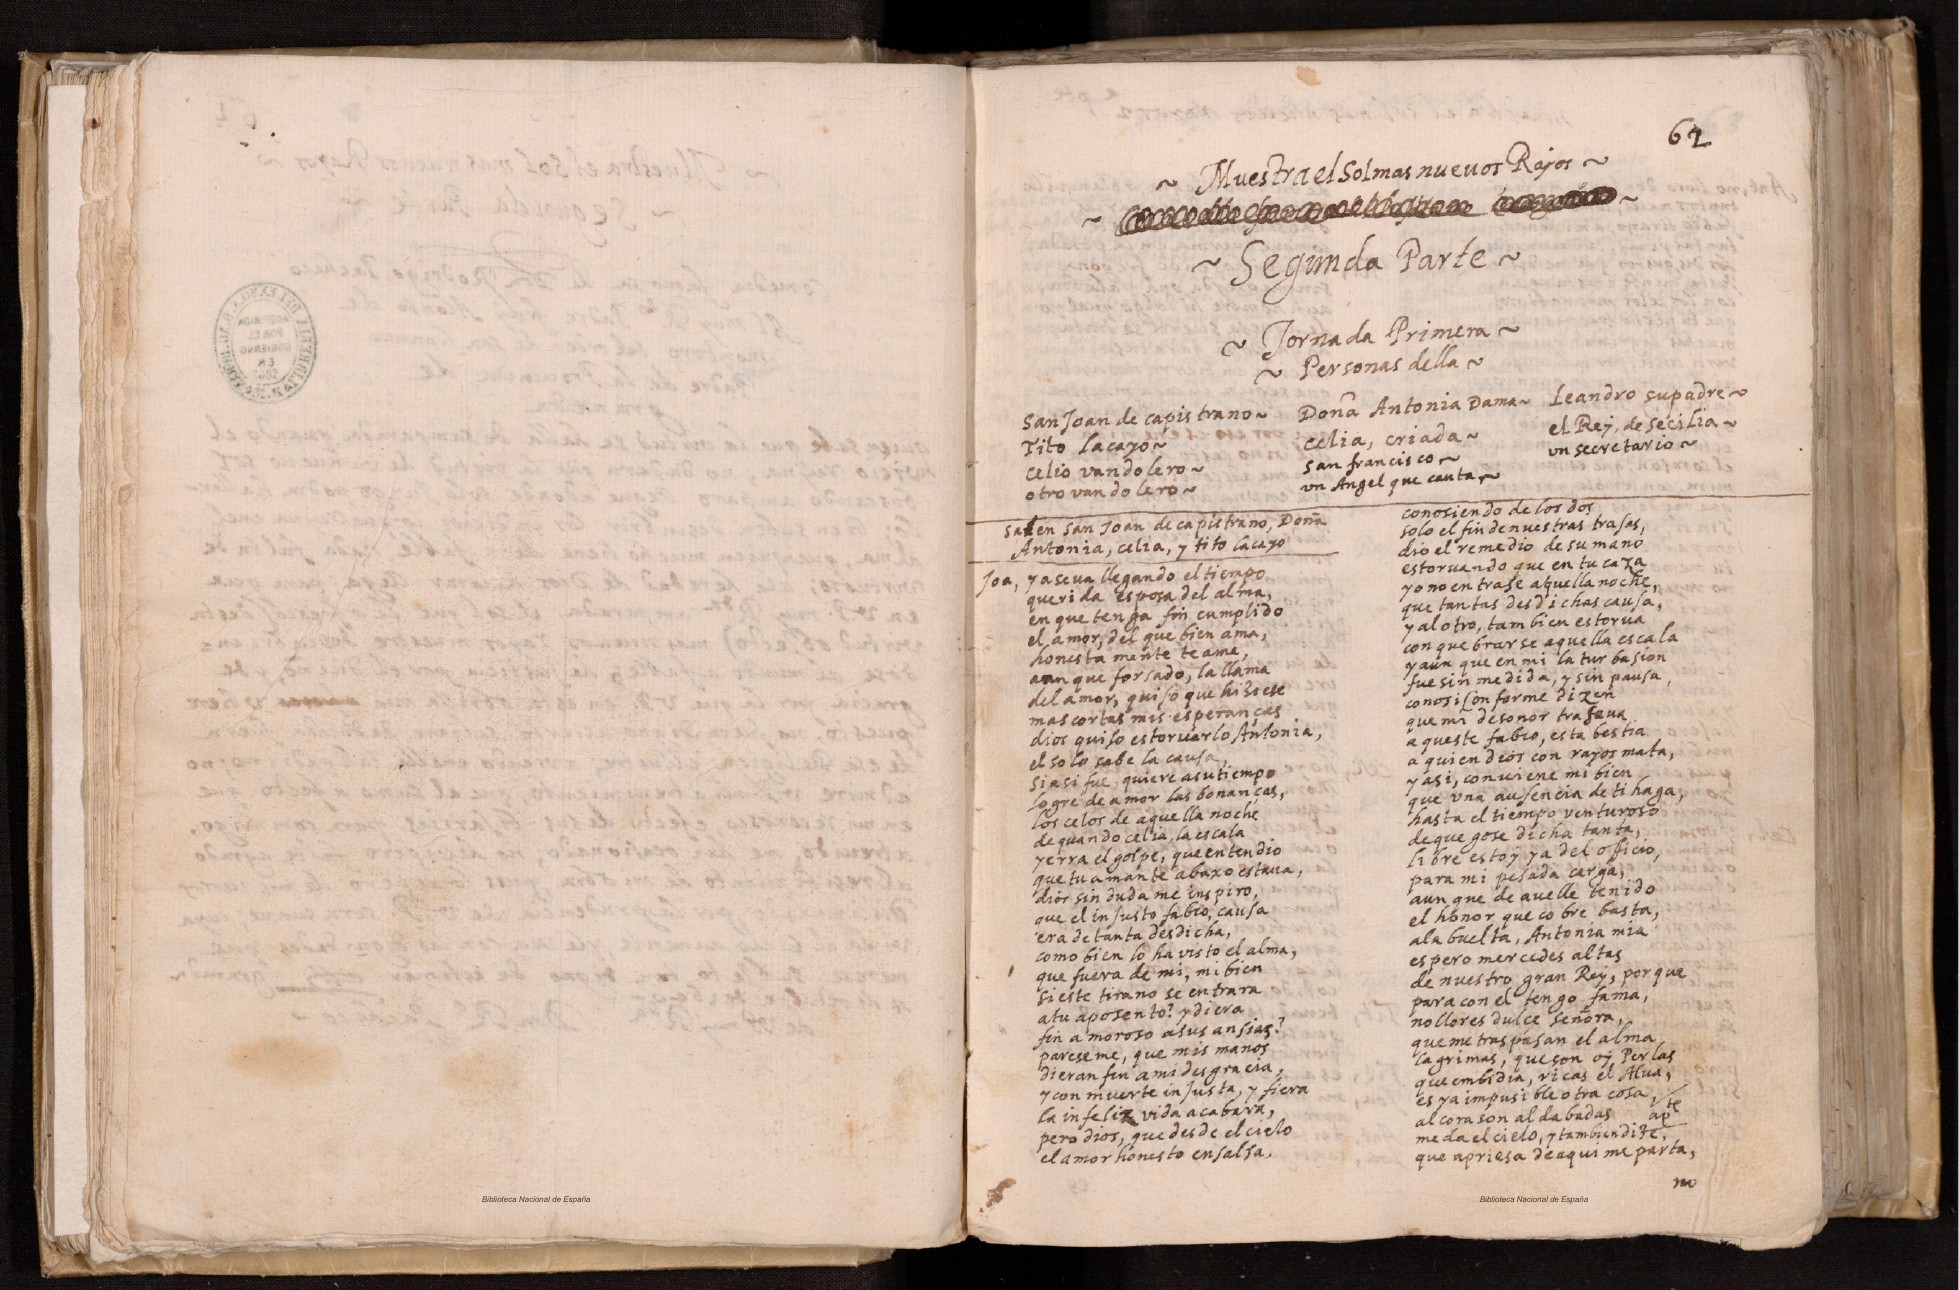 64
~ Muestra el Sol mas nuevos Rayos ~
~ Segunda Parte ~
~ Jornada Primera ~
~ Personas della ~
San Joan de capistrano ~
Tito lacayo ~
Celio vandolero ~
otro vandolero ~
Doña Antonia Dama ~
celia, criada ~
San francisco ~
vn Angel que canta, ~
Leandro su padre ~
el Rey, de Secilia ~
vn secretario ~
salen San Joan de capistrano, Doña
Antonia, celia, y tito lacayo
Joa, ya se va llegando el tiempo
querida esposa del alma,
en que tenga fin cumplido
el amor, del que bien ama,
honesta mente te ame,
aunque forsado, la llama
del amor, quiso que hisiese
mas cortas mis esperanças
dios quiso estorvarlo Antonia,
el solo sabe la causa,
si asi fue, quiere a su tiempo
logre de amor las bonanças,
los celos de aquella noche
de quando celia, la escala
yerra el golpe, que entendio
que tu amante abaxo estava,
dios sin duda me inspiro,
que el injusto fabio, causa
era de tanta desdicha,
como bien lo ha visto el alma,
que fuera de mi, mi bien
si este tirano se entrara
a tu aposento? y diera
fin amoroso a sus ansias?
pareseme, que mis manos
dieran fin a mi desgracia,
y con muerte injusta, y fiera
la infeliz vida acabara,
pero dios, que desde el cielo
el amor honesto ensalsa,
conosiendo de los dos
solo el fin de nuestras trasas,
dio el remedio de su mano
estorvando que en tu caza
yo no entrase aquella noche,
que tantas desdichas causa,
y al otro, tambien estorva
con quebrarse aquella escala
y aun que en mi la turbasion
fue sin medida, y sin pausa,
conosi son forme dizen
que mi desonor trasava
aqueste fabio, esta bestia
a quien dios con rayos mata,
y asi, conviene mi bien
que vna ausencia de ti haga,
hasta el tiempo venturoso
de que gose dicha tanta,
libre estoy ya del officio,
para mi pesada carga,
aun que de avelle tenido
el honor que cobre basta,
a la buelta, Antonia mia
espero mercedes altas
de nuestro gran Rey, porque
para con el tengo fama,
no llores dulce señora,
que me traspasan el alma
lagrimas, que son oy Perlas
que embidia, ricas el Alva,
es ya impusible otra cosa,
al corason aldabadas apte
me da el cielo, y tambien dize,
que apriesa de aqui me parta,
no
Biblioteca Nacional de España
Biblioteca Nacional de España